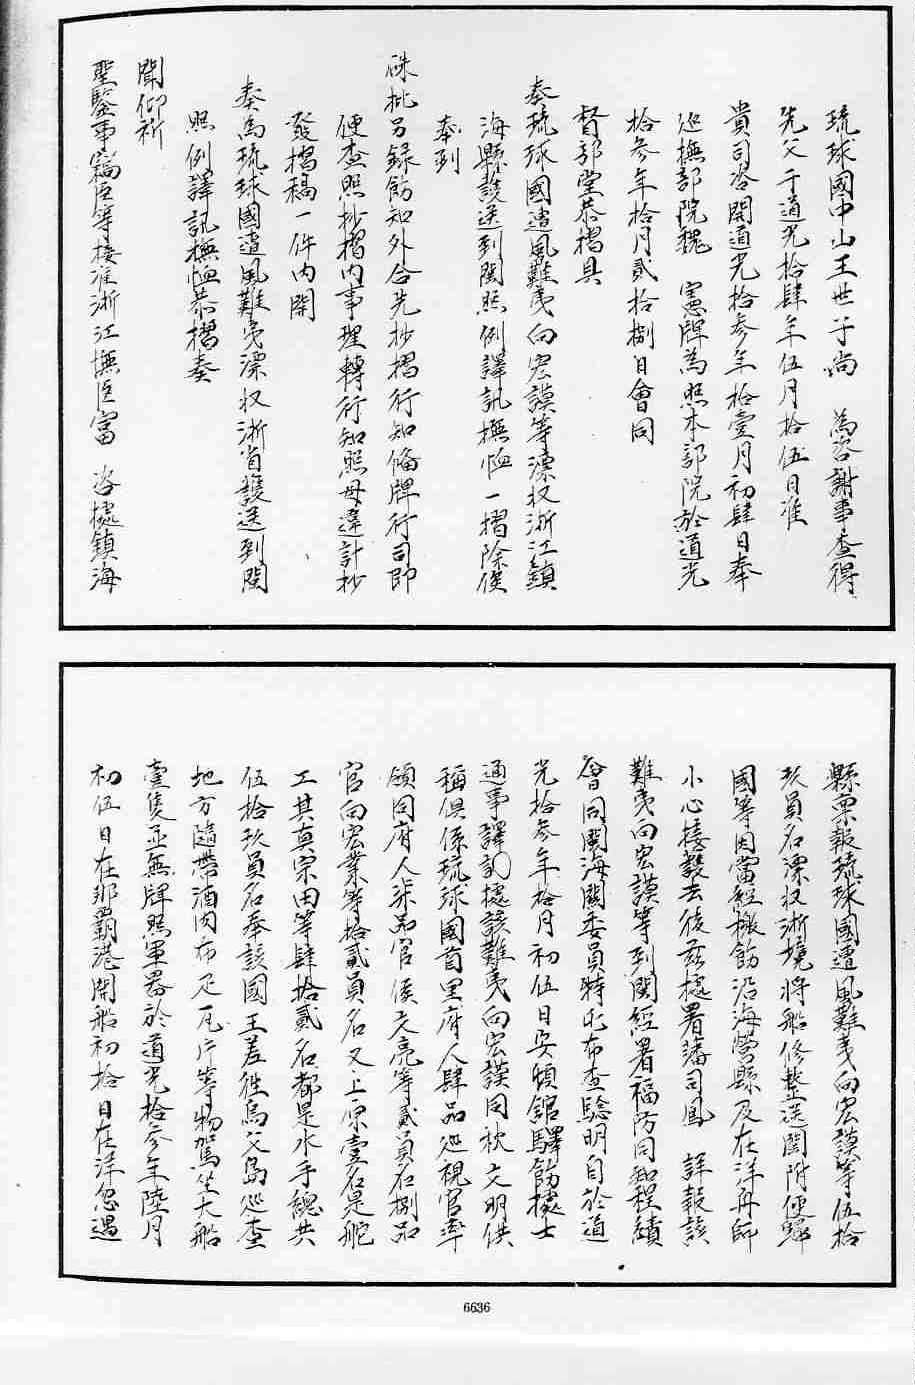 琉球國中山王世子尚　為咨謝事查得
先父于道光拾肆年伍月拾伍日准
貴司咨開道光拾參年拾壹月初肆日奉
巡撫部院魏　憲牌為照本部院於道光
拾參年拾月貳拾捌日會同
督部堂恭摺具
奏琉球國遭風難夷向宏謨等漂收浙江鎮
海縣護送到閩照例譯訊撫恤一摺除俟
奉到
硃批另錄飭知外合先抄摺行知備牌行司即
便查照抄摺內事理轉行知照毋違計抄
發摺稿一件內開
奏為琉球國遭風難夷漂收浙省護送到閩
照例譯訊撫恤恭摺奏
聞仰祈
聖鑒事竊臣等接准浙江撫臣富　咨據鎮海
縣稟報琉球國遭風難夷向宏謨等伍拾
玖員名漂收浙境將船修整送閩附便歸
國等因當經檄飭沿海營縣及在洋舟師
小心接護去後茲據署藩司鳳　詳報該
難夷向宏謨等到閩經署福防同知程績
會同閩海關委員特正布查驗明白於道
光拾參年拾月初伍日安頓館驛飭據士
通事譯訊據該難夷向宏謨同　文明供
稱俱係琉球國首里府人肆品巡視官率
領同府人柒品官俟文亮等貳員名捌品
官向宏業等拾貳員名又上原壹名是舵
工其真宗田等肆拾貳名都是水手總共
伍拾玖員名奉該國王差往烏父島巡查
地方隨帶酒肉布疋瓦片等物駕坐大船
壹隻並無牌照軍器於道光拾參年陸月
初伍日在那覇港開船初拾日在洋忽遇
6636